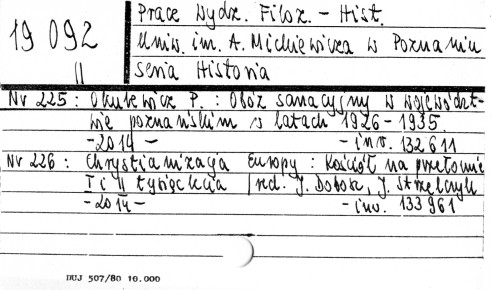 19 092
II
Prace Wydz. Filoz. - Hist.
Uniw. im. A. Mickiewicza w Poznaniu
Seria Historia
Nr 225 : Okulewicz P. : Obóz sanacyjny w województ-
wie poznańskim w latach 1926-1935.
-2014 - - inw. 132 611
Nr 226 : Chrystianizacja Europy : Kościół na przełomie
I i II tysiąclecia / red. J. Dobosz, J. Strzelczyk
-2014 - - inw. 133 961
DUJ 507/80 10.000